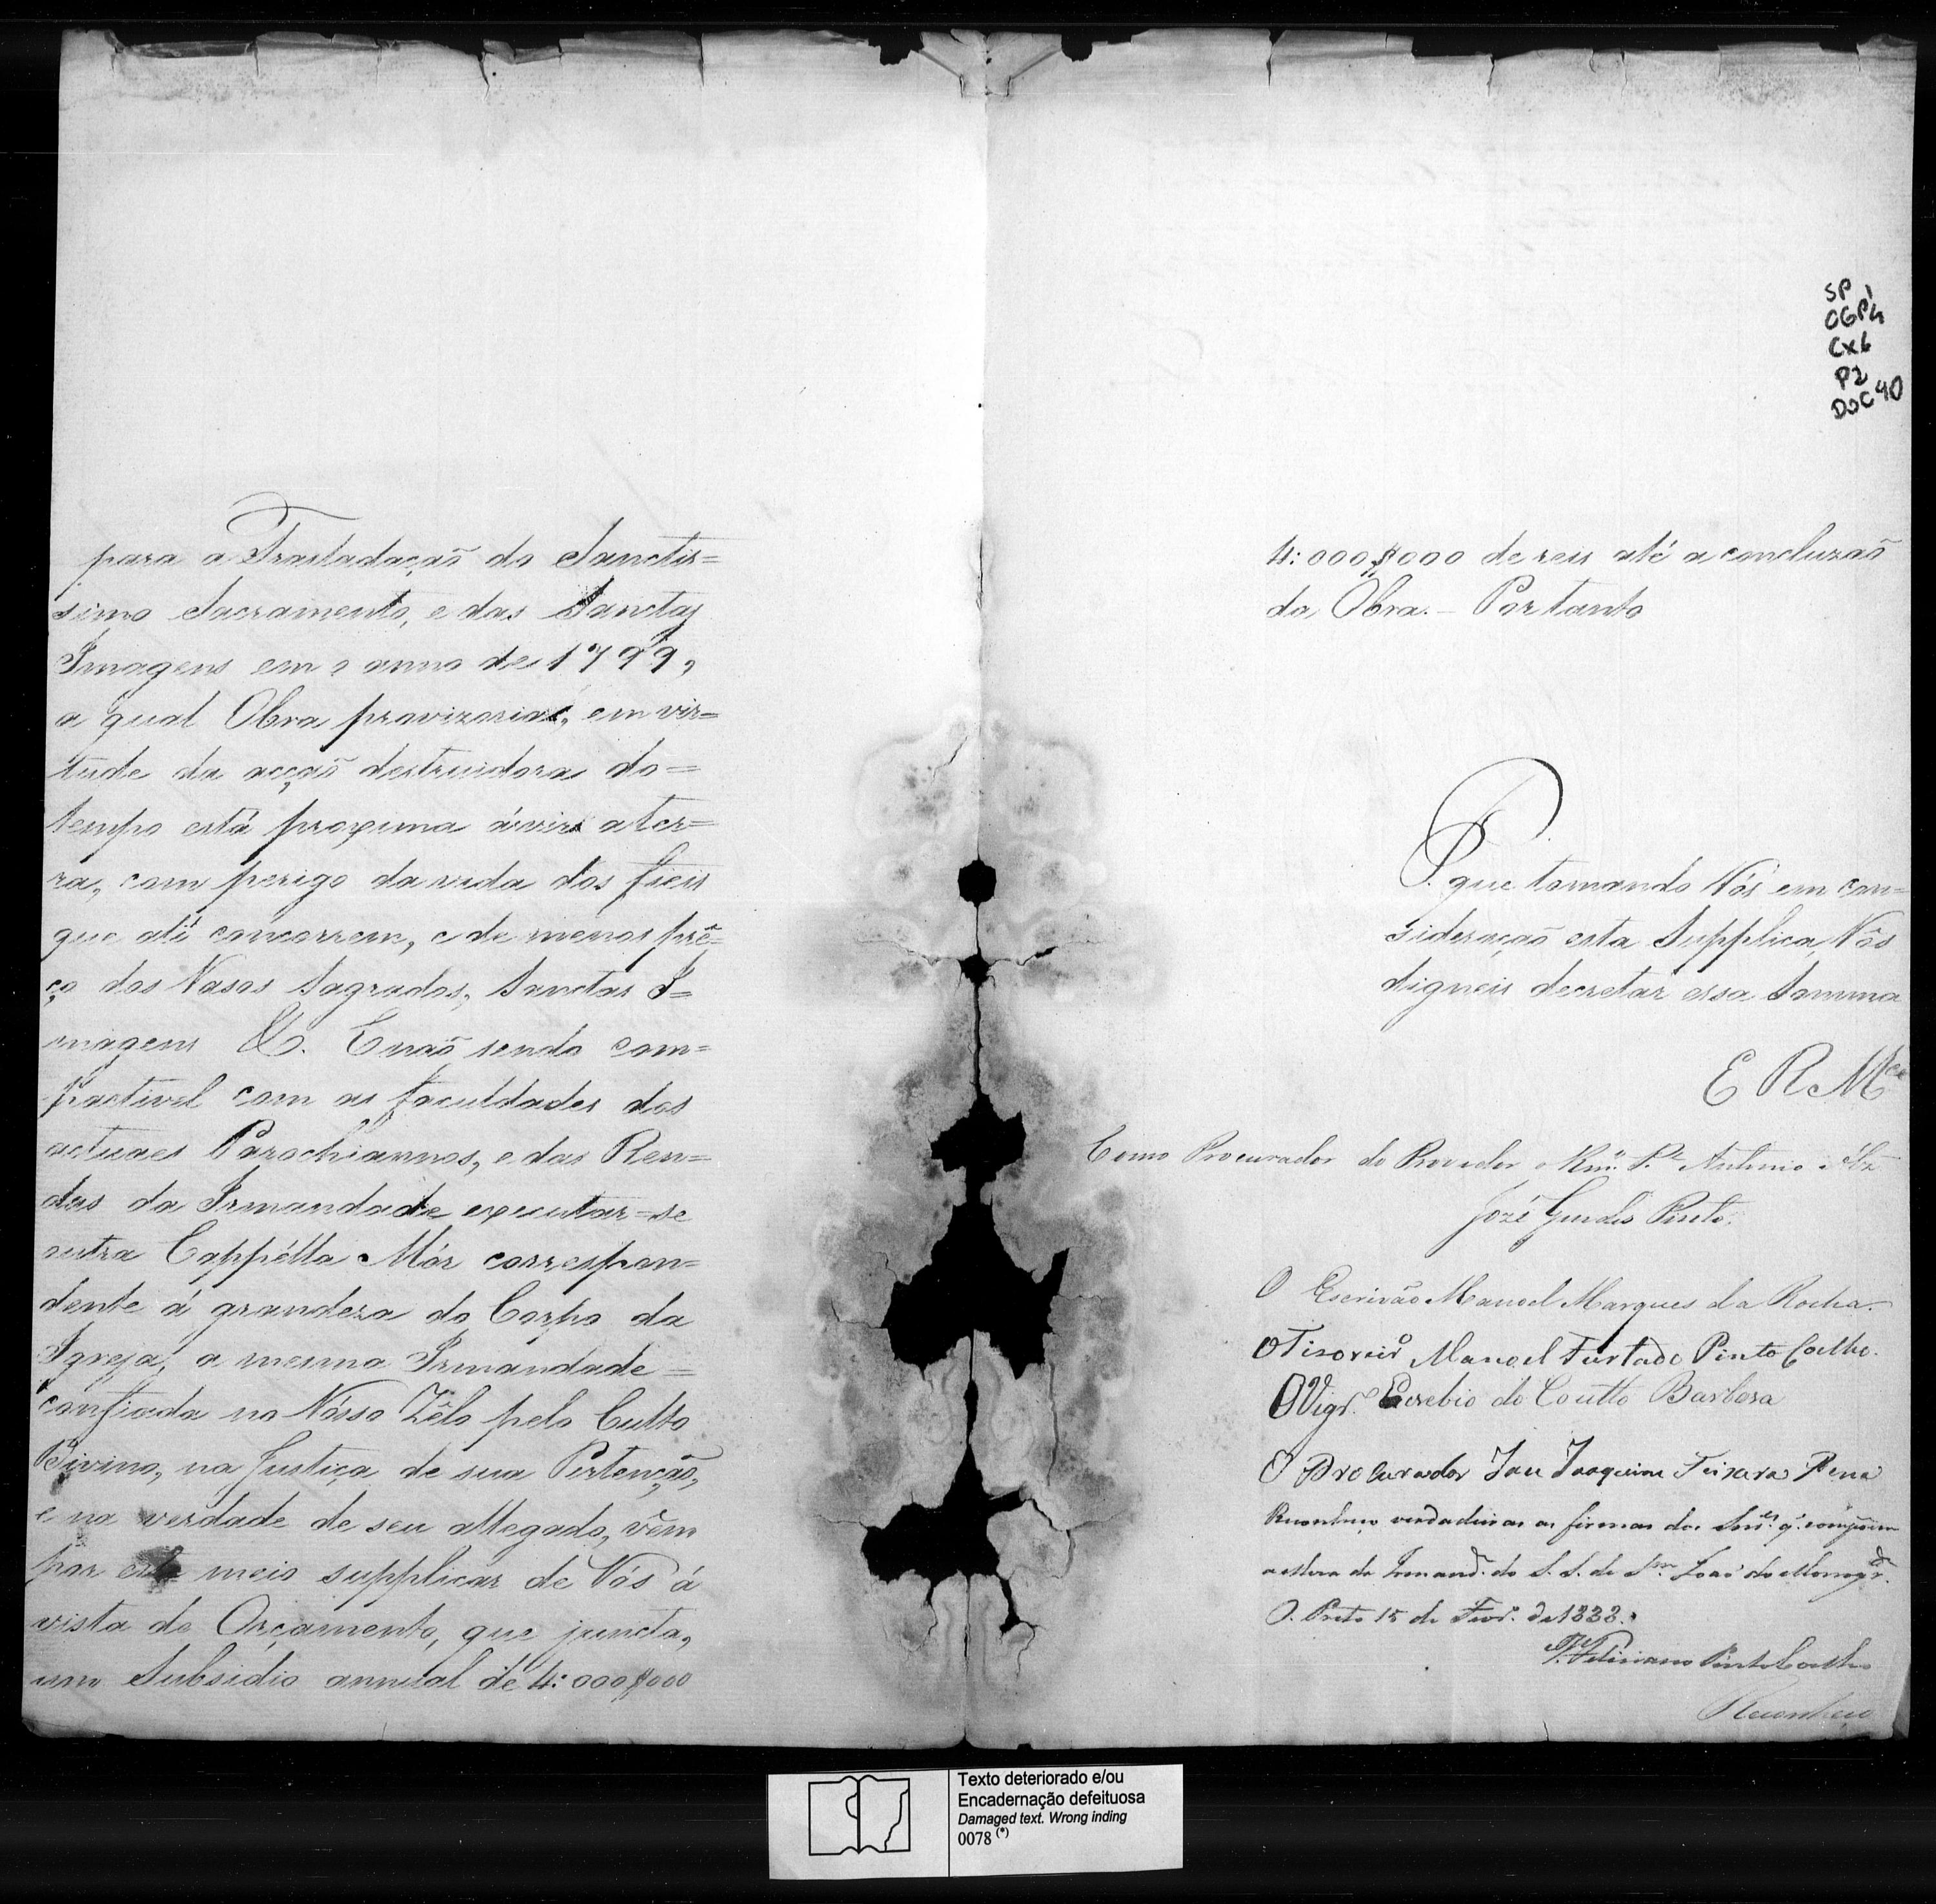 para a Trasladação do Sanctis=
simo Sacramento, e das Sanctas
Imagens em o anno de 1799,
a qual Obra provizoria, em vir=
tude da acção destruidora do=
tempo está proxima á vir a ter=
ra, com perigo da vida dos fieis
que ali concorrem, e de menos prê=
ço dos Vasos Sagrados, Sanctas I=
magens &. E não sendo com=
pactivel com as faculdades dos
actuaes Parochiannos, e das Ren=
das da Irmandade executar=se
outra Cappélla Mór correspon=
dente á grandeza do Corpo da
Igreja, a mesma Irmandade=
confiada no Vósso Zêlo pelo Culto
Divino, na Justiça de sua Pertenção,
e na verdade de seu allegado, vêm
por este meio supplicar de Vós á
vista do Orçamento, que juncta,
um Subsidio annual de 4:000$000
SP
CX6
P2
DOC 40
4:000$000 de reis até a concluzaõ
da Obra.- Portanto
P. que tomando Vós em con=
sideração esta Supplica, Vós
digneis decretar essa Somma
E R Mce
Como Procurador do Provedor o Rmo. Pe. Antonio
José Guedes Pinto.
O Escrivão Manoel Marques da Rocha.
O Tisoreiro Manoel Furtado Pinto Coelho.
O Vigro. Euzebio do Coutto Barbosa
O Procurador Joaquim Teixara Pena
Reconheço verdadeiras as firmas dos Snres. q. compoem
a Meza da Irmandde. do S. S. de Sm. João do Morro gr.de
O. Preto 15 de Fevro. de 1838.
Feliciano Pinto Coelho
Reconheço
Texto deteriorado e/ou
Encadernação defeituosa
Damaged text. Wrong inding
0078 (*)